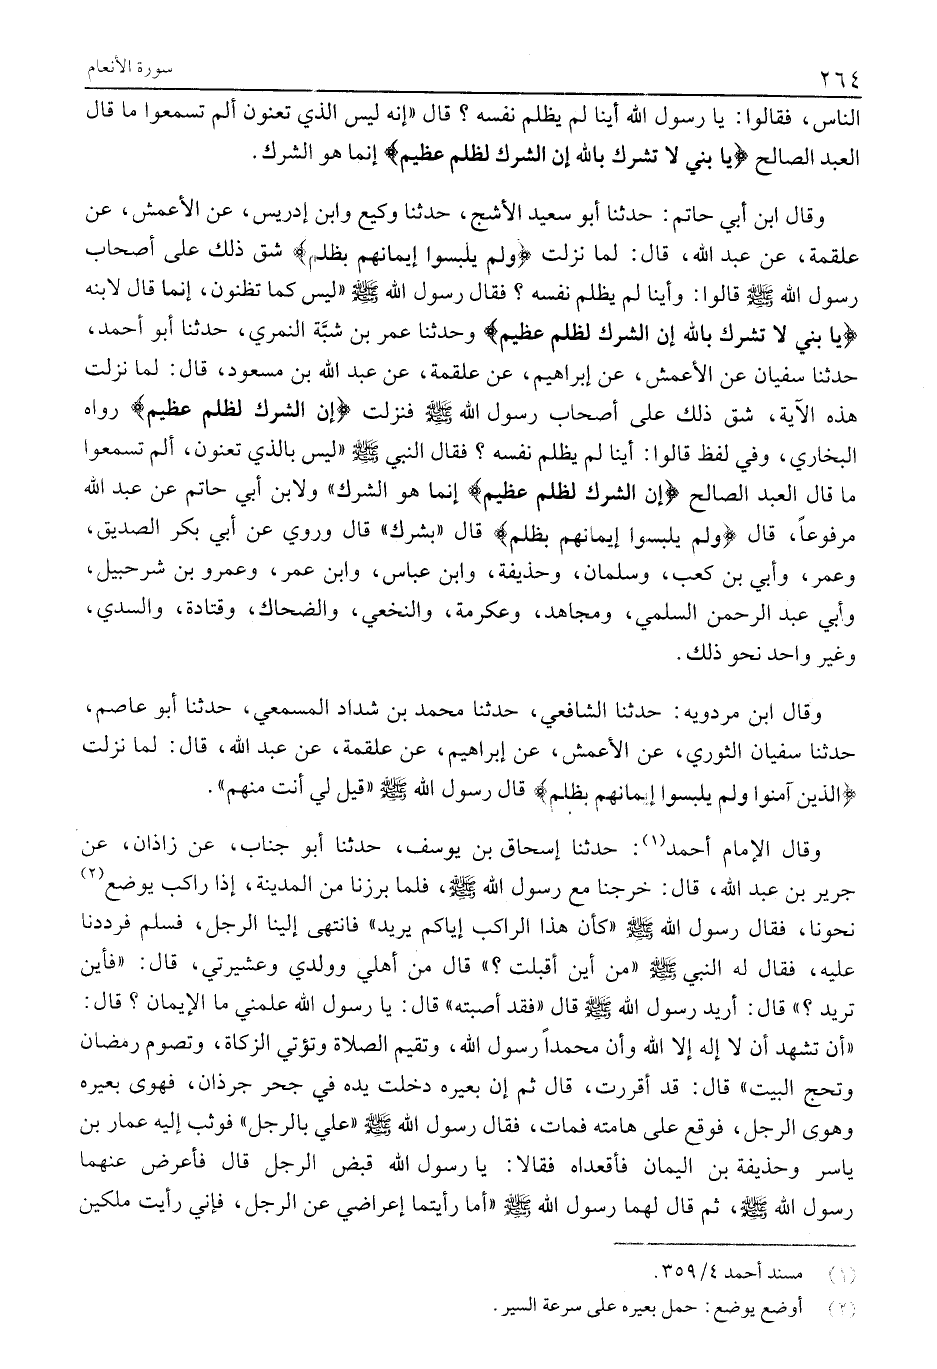 ٢٦٤ سورة الأنعام
الناس، فقالوا: يا رسول الله أينا لم يظلم نفسه؟ قال «إنه ليس الذي تعنون ألم تسمعوا ما قال
العبد الصالح ﴿يا بني لا تشرك بالله إن الشرك لظلم عظيم﴾ إنما هو الشرك.
وقال ابن أبي حاتم: حدثنا أبو سعيد الأشج، حدثنا وكيع وابن إدريس، عن الأعمش، عن
علقمة، عن عبد الله، قال: لما نزلت ﴿ولم يلبسوا إيمانهم بظلم﴾ شق ذلك على أصحاب
رسول الله ﷺ قالوا: وأينا لم يظلم نفسه؟ فقال رسول الله ﷺ «ليس كما تظنون، إنما قال لابنه
﴿يا بني لا تشرك بالله إن الشرك لظلم عظيم﴾ وحدثنا عمر بن شبَّة النمري، حدثنا أبو أحمد،
حدثنا سفيان عن الأعمش، عن إبراهيم، عن علقمة، عن عبد الله بن مسعود، قال: لما نزلت
هذه الآية، شق ذلك على أصحاب رسول الله ﷺ فنزلت ﴿إن الشرك لظلم عظيم﴾ رواه
البخاري، وفي لفظ قالوا: أينا لم يظلم نفسه؟ فقال النبي ﷺ «ليس بالذي تعنون، ألم تسمعوا
ما قال العبد الصالح ﴿إن الشرك لظلم عظيم﴾ إنما هو الشرك» ولابن أبي حاتم عن عبد الله
مرفوعاً، قال ﴿ولم يلبسوا إيمانهم بظلم﴾ قال «بشرك» قال وروي عن أبي بكر الصديق،
وعمر، وأبي بن كعب، وسلمان، وحذيفة، وابن عباس، وابن عمر، وعمرو بن شرحبيل،
وأبي عبد الرحمن السلمي، ومجاهد، وعكرمة، والنخعي، والضحاك، وقتادة، والسدي،
وغير واحد نحو ذلك.
وقال ابن مردويه: حدثنا الشافعي، حدثنا محمد بن شداد المسمعي، حدثنا أبو عاصم،
حدثنا سفيان الثوري، عن الأعمش، عن إبراهيم، عن علقمة، عن عبد الله، قال: لما نزلت
﴿الذين آمنوا ولم يلبسوا إيمانهم بظلم﴾ قال رسول الله ﷺ «قيل لي أنت منهم».
وقال الإمام أحمد(١): حدثنا إسحاق بن يوسف، حدثنا أبو جناب، عن زاذان، عن
جرير بن عبد الله، قال: خرجنا مع رسول الله ﷺ، فلما برزنا من المدينة، إذا راكب يوضع(٢)
نحونا، فقال رسول الله ﷺ «كأن هذا الراكب إياكم يريد» فانتهى إلينا الرجل، فسلم فرددنا
عليه، فقال له النبي ﷺ «من أين أقبلت؟» قال من أهلي وولدي وعشيرتي، قال: «فأين
تريد؟» قال: أريد رسول الله ﷺ قال «فقد أصبته» قال: يا رسول الله علمني ما الإيمان؟ قال:
«أن تشهد أن لا إله إلا الله وأن محمداً رسول الله، وتقيم الصلاة وتؤتي الزكاة، وتصوم رمضان
وتحج البيت» قال: قد أقررت، قال ثم إن بعيره دخلت يده في جحر جرذان، فهوى بعيره
وهوى الرجل، فوقع على هامته فمات، فقال رسول الله ﷺ «علي بالرجل» فوثب إليه عمار بن
ياسر وحذيفة بن اليمان فأقعداه فقالا: يا رسول الله قبض الرجل قال فأعرض عنهما
رسول الله ﷺ، ثم قال لهما رسول الله ﷺ «أما رأيتما إعراضي عن الرجل، فإني رأيت ملكين
(١) مسند أحمد ٤/ ٣٥٩.
(٢) أوضع يوضع: حمل بعيره على سرعة السير.